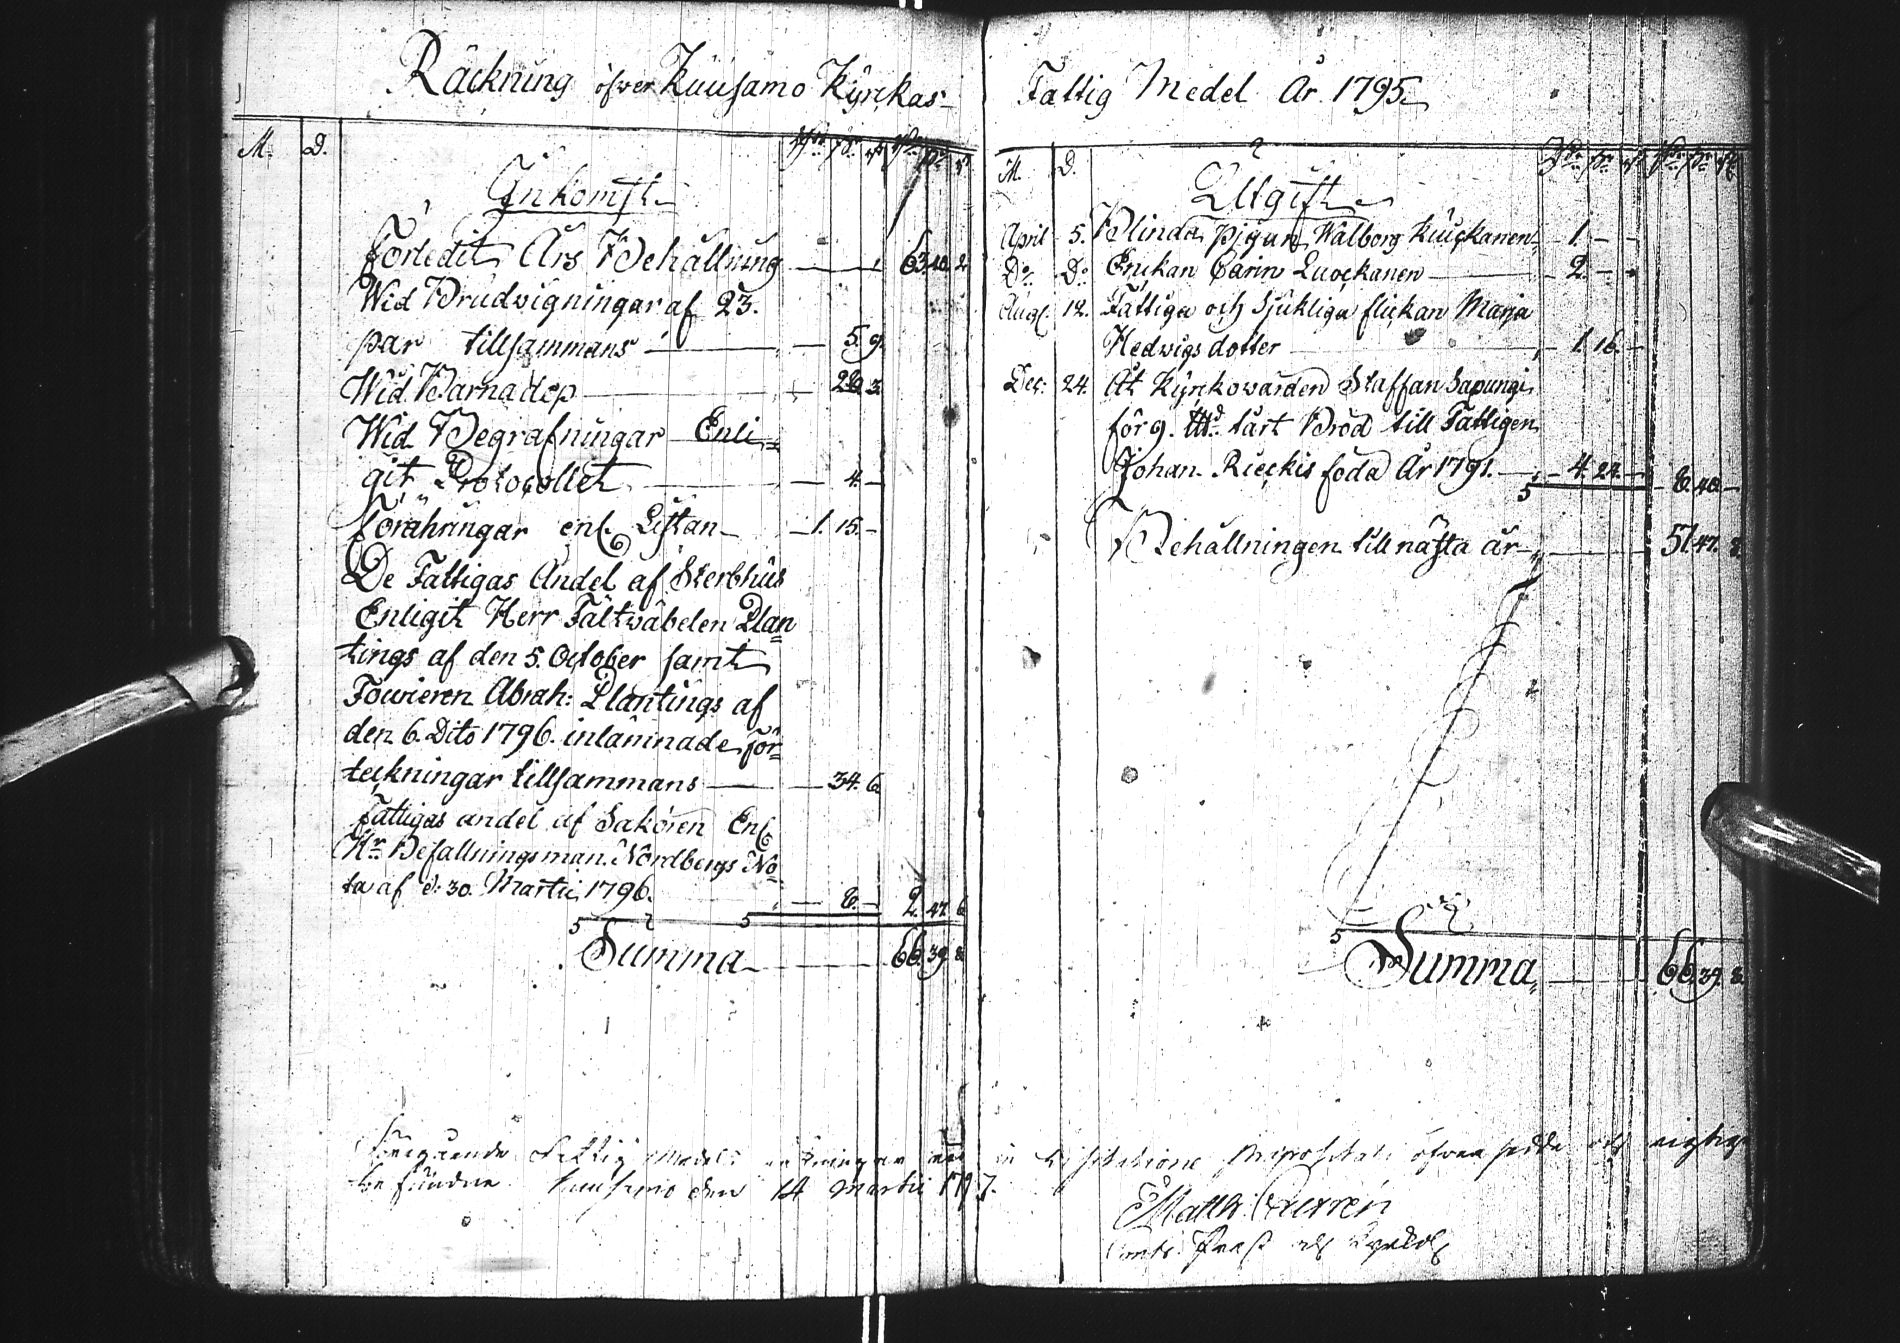 Räckning öfver Kuusamo Kyrckas
M. D.
Inkomst
Förledit Års Behållning 63.40.2
Wid Brudvigningar af 23.
par tillsammans 5.9.
Wid Barnadop 26.3
Wid Begrafningar Enli=
git Protocollet 4.
Förähringar enl. Listan 1.15.
De Fattigas Andel af Sterbhus
Enligit Herr Fältväbelen Plan=
tings af den 5. October samt
Fourieren Abrah: Plantings af
den 6. Dito 1796. inlämnade för=
teckningar tillsammans 34.6
Fattigas andel af Sakören Enl.
Hr. Befallningsman Nordbergs No=
ta af d. 30. Martii 1796. 8. 2.47.6
Summa 66.39.8
Fattig Medel År 1795.
M. D.
Utgift
April 5. Blinda pigan Walborg Kuickanen 1.
Do. Do. Enckan Carin Luockanen 2.
Aug. 12. Fattiga och Sjukliga flickan Marja
Hedvigsdotter 1.16.
Dec: 24. Åt Kyrckovärden Staffan Sapungi
för 9. lttd. tårt Bröd till Fattigen
Johan Rieckis föda År 1791. 4.24. 8.40.
Behållningen till nästa år 57.47.8
Summa 66.39.8.
Föregående Fattig Medels räkningar in Visitatione Præpositali öfversedde och rigtige
befundne Kuusamo den 14 Martii 1797.
Matth:
Prost och Kyrkoh